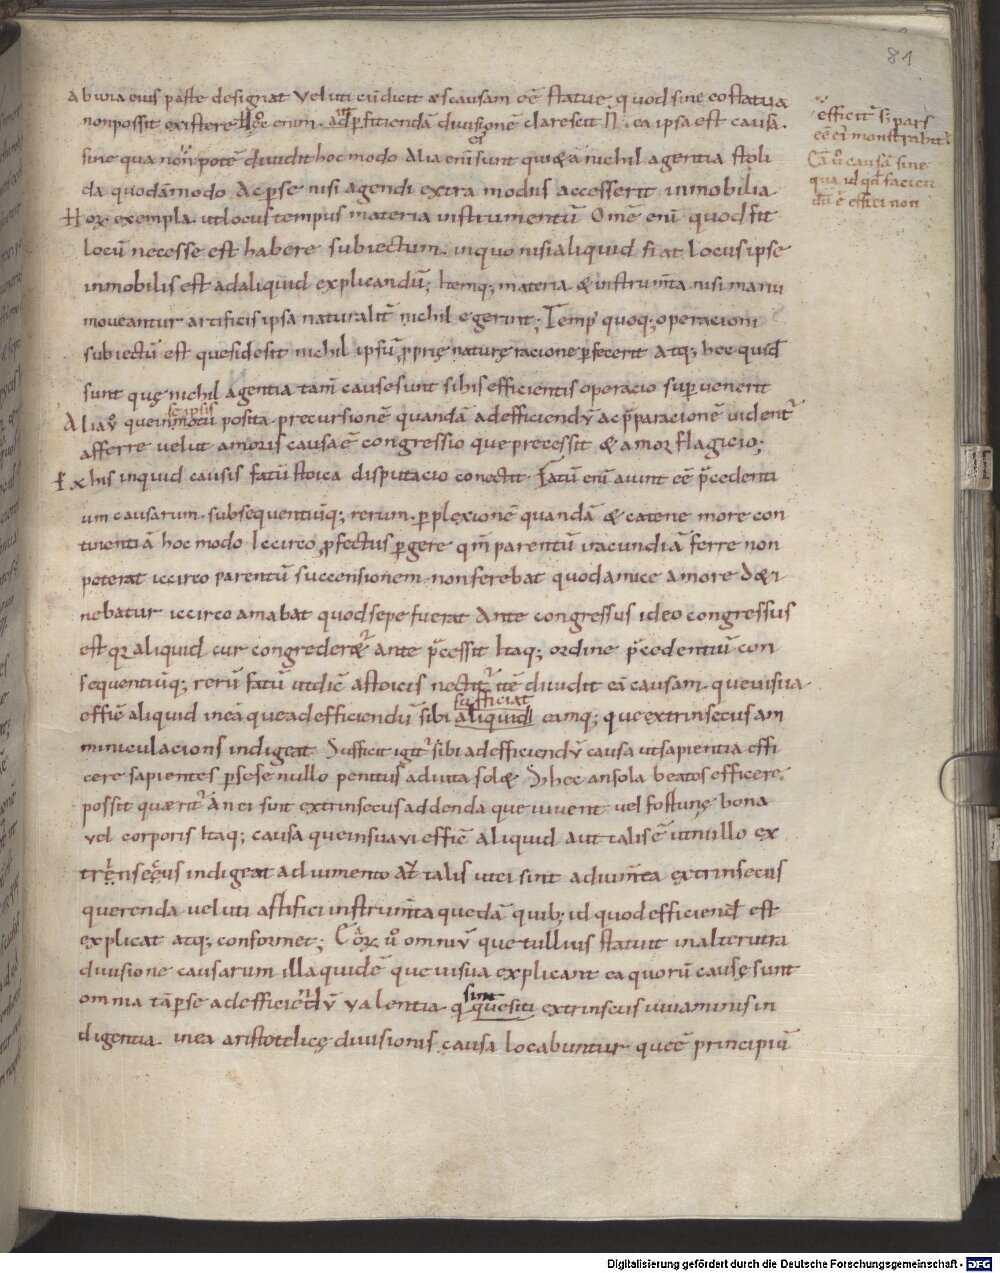 81
ab una eius parte designat veluti cū dicit æs causam eē statue quod sine eo statua
non possit existere Hoc enim ad perficiendā divisionē clarescit N̄ ea ipsa est causa.
sine qua non potē dividit hoc modo Alia enī sunt quieta nichil agentia stoli
da quodāmodo Ac per se nisi agendi extra modus accesserit inmobilia
Hoꝝ exempla ut locus tempus materia instrumentū Omē enī quod fit
locū necesse est habere subiectum. in quo nisi aliquid fiat Locus ipse
inmobilis est ad aliquid explicandū; Itemq; materia & instrum̄ta nisi manu
moveantur artificis ipsa naturalit̄ nichil egerint; Temp' quoq; operacioni
subiectū est que si desit nichil ipsū ꝓprię naturę racione ꝑfecerit Atq; hec quid̄
sunt quę nichil agentia tam̄ cause sunt si his efficientis operacio supervenerit
Alia v̊ que in motu posita precursionē quandā ad efficiendv̄ ac p̄paracionē vident̄
se ipsis
afferre velut amoris causa ē congressio que precessit & amor flagicio;
Ex his inquid causis fatū stoica disputacio conectit. Fatū enī aiunt eē p̄cedenti
um causarum. subsequentiūq; rerum. ꝑplexionē quandā & catene more con
tinentiā hoc modo Iccirco ꝓfectus ꝑgere qm̄ parentū iracundiā ferre non
poterat iccirco parentū succensionem non ferebat quod amice amore d&i
nebatur iccirco amabat quod sepe fuerat Ante congressus ideo congressus
est qr̄ aliquid cur congreder&ᷣ ante p̄cessit Itaq; ordine p̄cedentiū con
sequentiūq; rerū fatū ut diē a stoicis nectit̄ itē dividit eā causam que vi sua
effic̄ aliquid in eā que ad efficiendū sibi aliquid eamq; que extrinsecus am
sufficiat
miniculacionis indigeat Sufficit igit̄ sibi ad efficiendv̄ causa ut sapientia effi
cere sapientes ꝑ sese nullo penitus adiuta sol& S; hec an sola beatos efficere
possit quærit̄ An ei sint extrinsecus addenda que iuvent vel fortunę bona
vel corporis Itaq; causa que in sua vi effic̄ aliquid aut talis ē ut nullo ex
trinsecus indigeat adiumento At̄ talis ut ei sint adium̄ta extrinsecus
querenda veluti artifici instrum̄ta quedā quib; id quod efficiend̄ est
explicat atq; conformet; Coꝝ v̊ omniv̄ que tullius statuit in alterutra
divisione causarum illa quidē que vi sua explicant ea quorū causę sunt
omnia tā ꝑ se ad efficiendv̄ valentia quesiti extrinsecus iuvaminis in
sint
digentia. in ea aristotelicę divisionis causa locabuntur que ē principiū
efficit̄ S; pars
eē ei monstrabit̄
Cā v̊ causā sine
qua id qd̄ facien
dū ē effici non
Digitalisierung gefördert durch die Deutsche Forschungsgemeinschaft - DFG